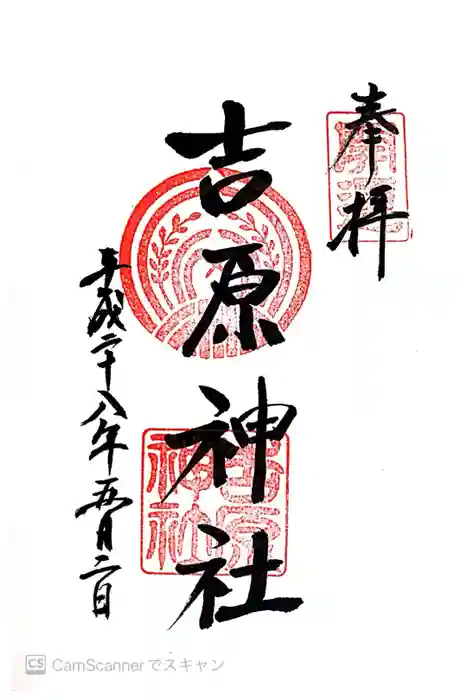 奉拝
吉原神社
平成二十八年五月二日
吉原
神社
CS CamScannerでスキャン